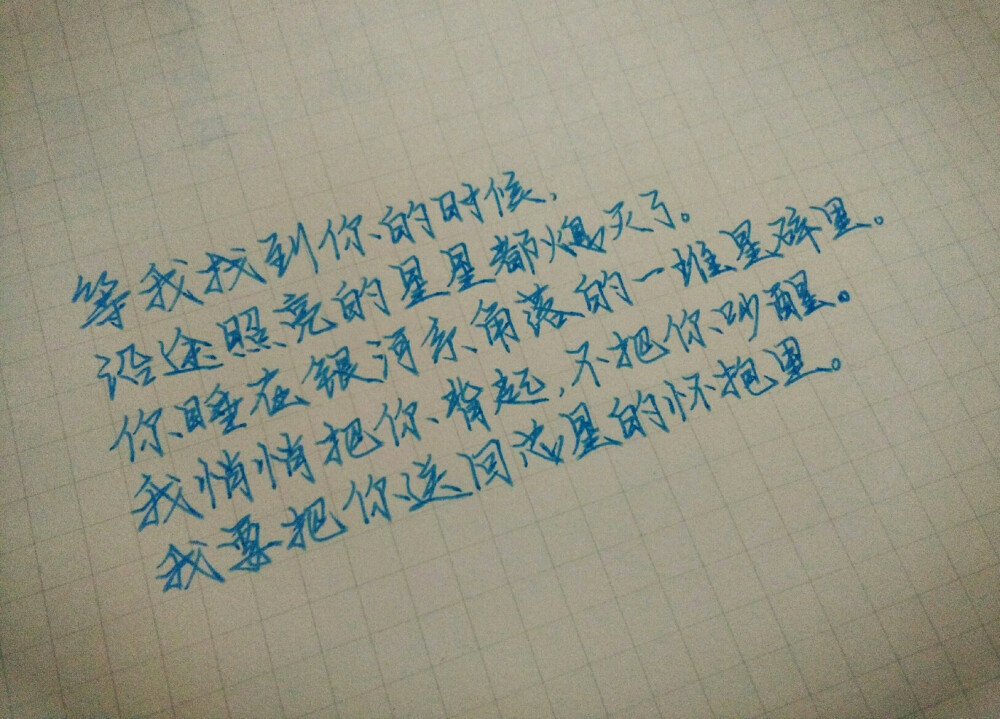 等我找到你的时候，
沿途照亮的星星都熄灭了。
你睡在银河系角落的一堆星碎里。
我悄悄把你背起，不把你吵醒。
我要把你送回恋星的怀抱里。